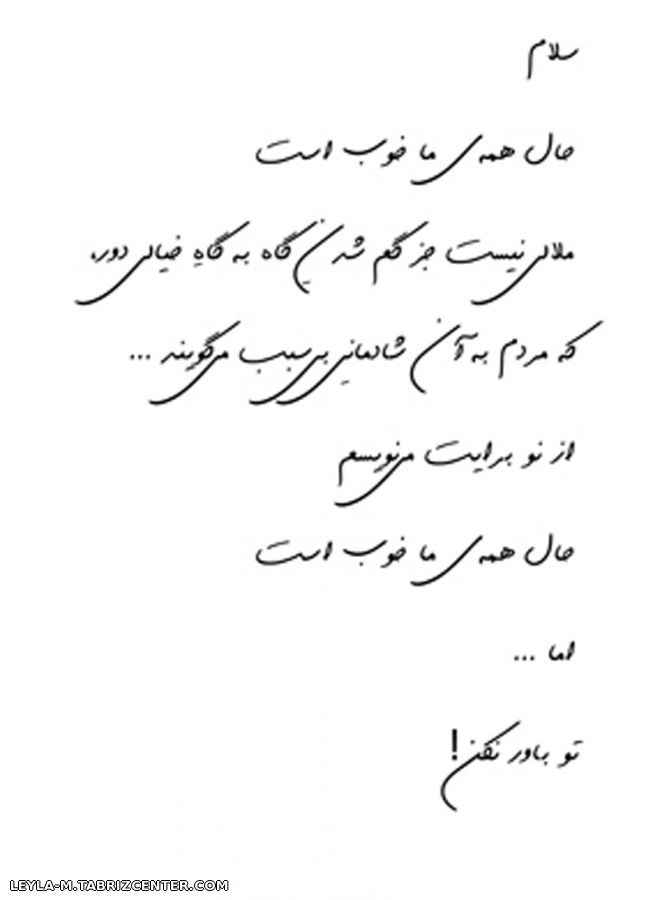 سلام
حال همه‌ی ما خوب است
ملالی نیست جز گم شدنِ گاه به گاهِ خیالی دور،
که مردم به آن شادمانیِ بی‌سبب می‌گویند ...
از نو برایت می‌نویسم
حال همه‌ی ما خوب است
اما ...
تو باور نکن!
LEYLA-M.TABRIZCENTER.COM